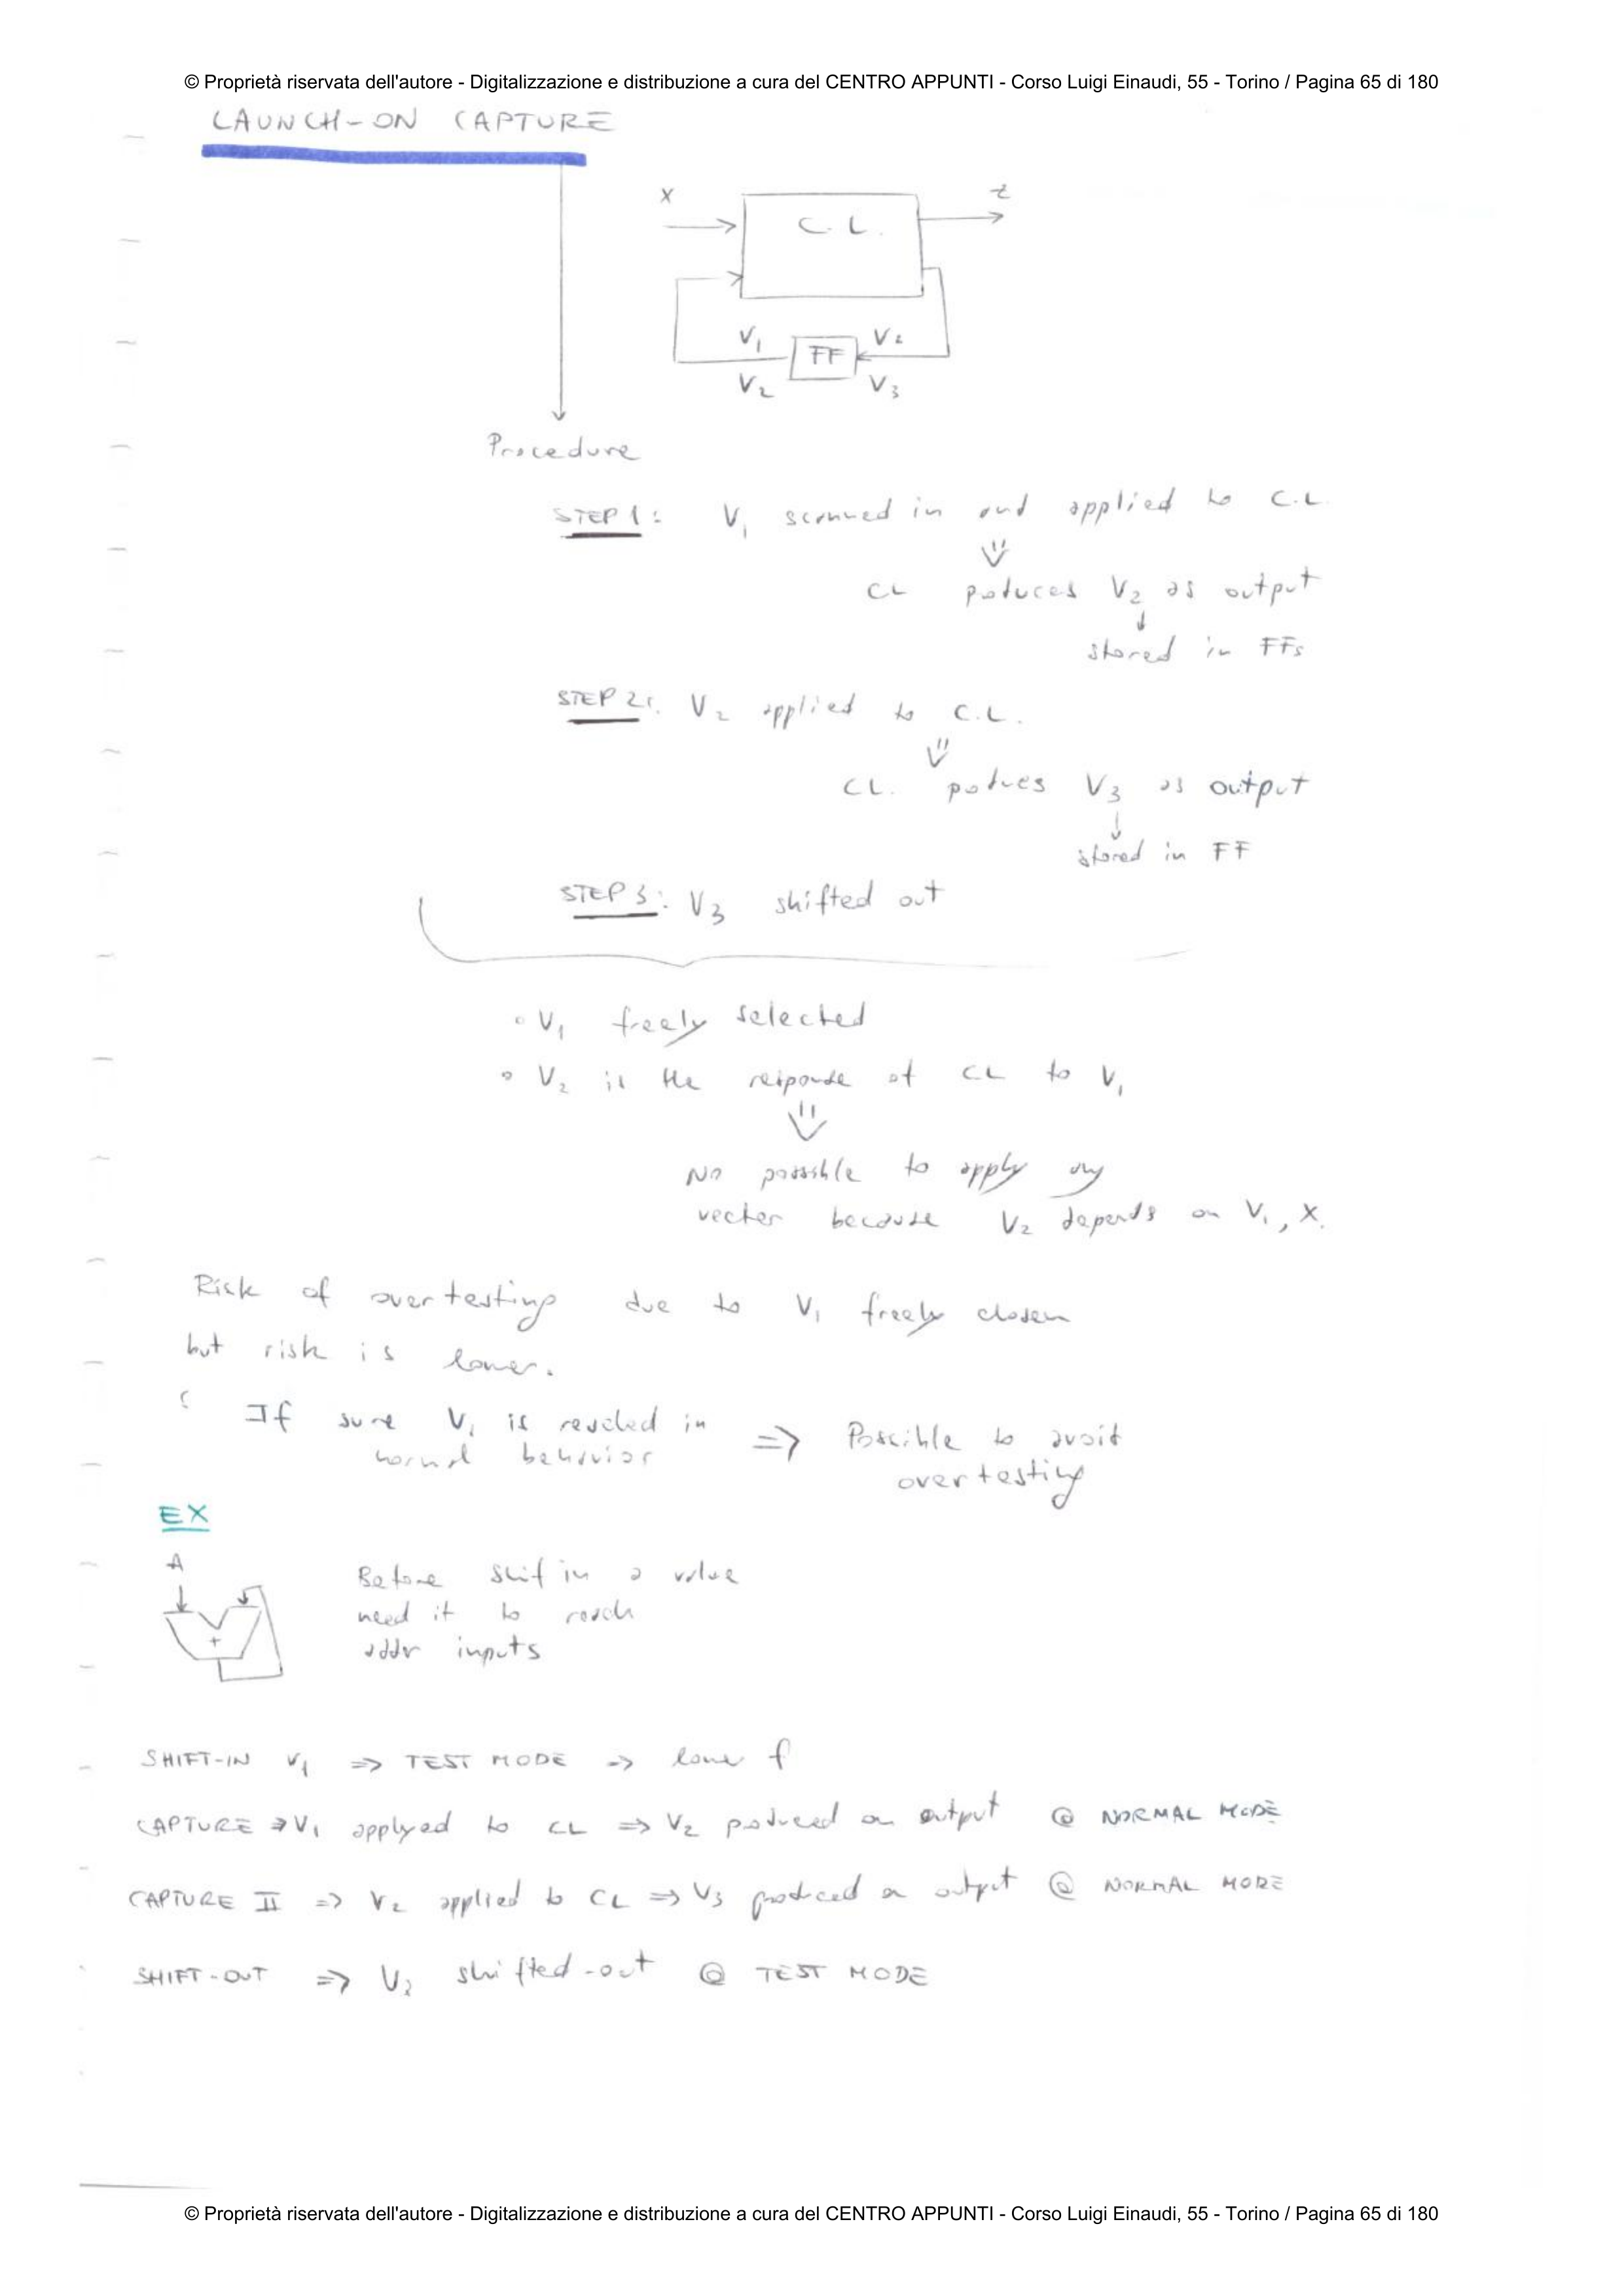 © Proprietà riservata dell'autore - Digitalizzazione e distribuzione a cura del CENTRO APPUNTI - Corso Luigi Einaudi, 55 - Torino / Pagina 65 di 180
LAUNCH-ON CAPTURE
X
z
C.L.
V1 FF V2
V2 V3
Procedure
STEP 1: V1 scanned in and applied to C.L.
⇓
CL produces V2 as output
↓
stored in FFs
STEP 2: V2 applied to C.L.
⇓
CL. podues V3 as output
↓
stored in FF
STEP 3: V3 shifted out
• V1 freely selected
• V2 is the response of CL to V1
⇓
No possible to apply any
vector because V2 depends on V1, X.
Risk of overtesting due to V1 freely chosen
but risk is lower.
If sure V1 is reached in ⇒ Possible to avoid
normal behavior overtesting
EX
A
+
Before shift in a value
need it to reach
addr inputs
SHIFT-IN V1 ⇒ TEST MODE ⇒ lower f
CAPTURE ⇒ V1 applyed to CL ⇒ V2 produced on output @ NORMAL MODE
CAPTURE II ⇒ V2 applied to CL ⇒ V3 produced on output @ NORMAL MODE
SHIFT-OUT ⇒ V3 shifted-out @ TEST MODE
© Proprietà riservata dell'autore - Digitalizzazione e distribuzione a cura del CENTRO APPUNTI - Corso Luigi Einaudi, 55 - Torino / Pagina 65 di 180